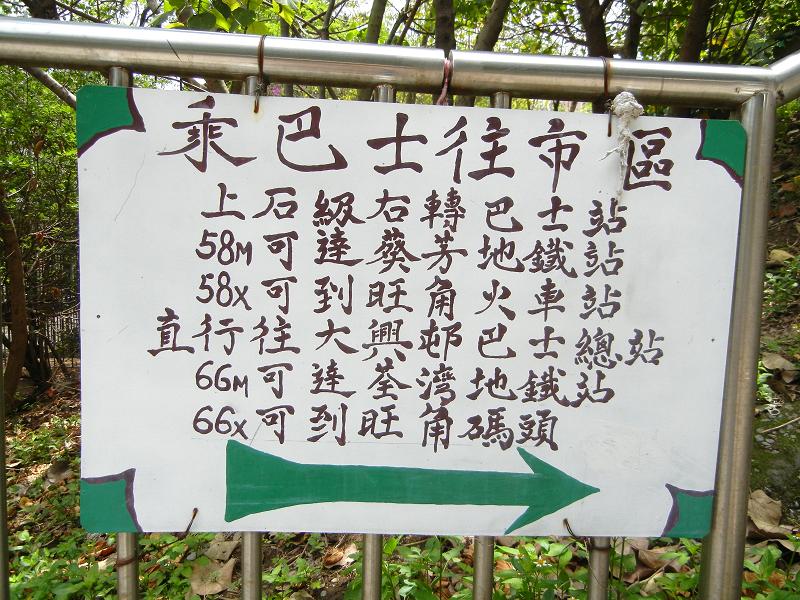 乘巴士往市區
上石級右轉巴士站
58M可達葵芳地鐵站
58X可到旺角火車站
直行往大興邨巴士總站
66M可達荃灣地鐵站
66X可到旺角碼頭